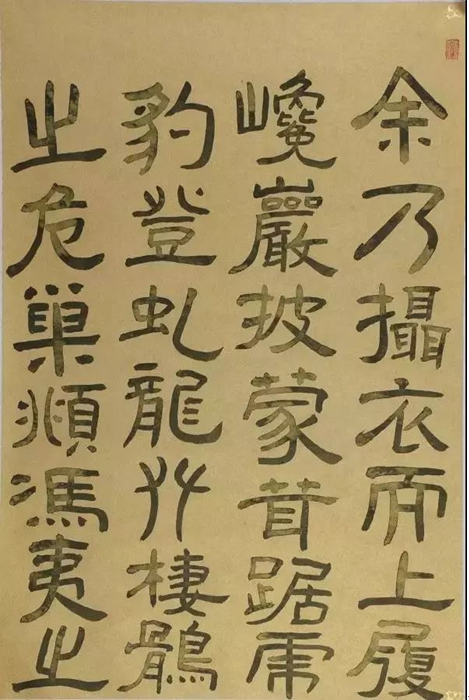 余乃攝衣而上履
巉巖披蒙茸踞虎
豹登虬龍𠬜棲鶻
之危巢頫馮夷之